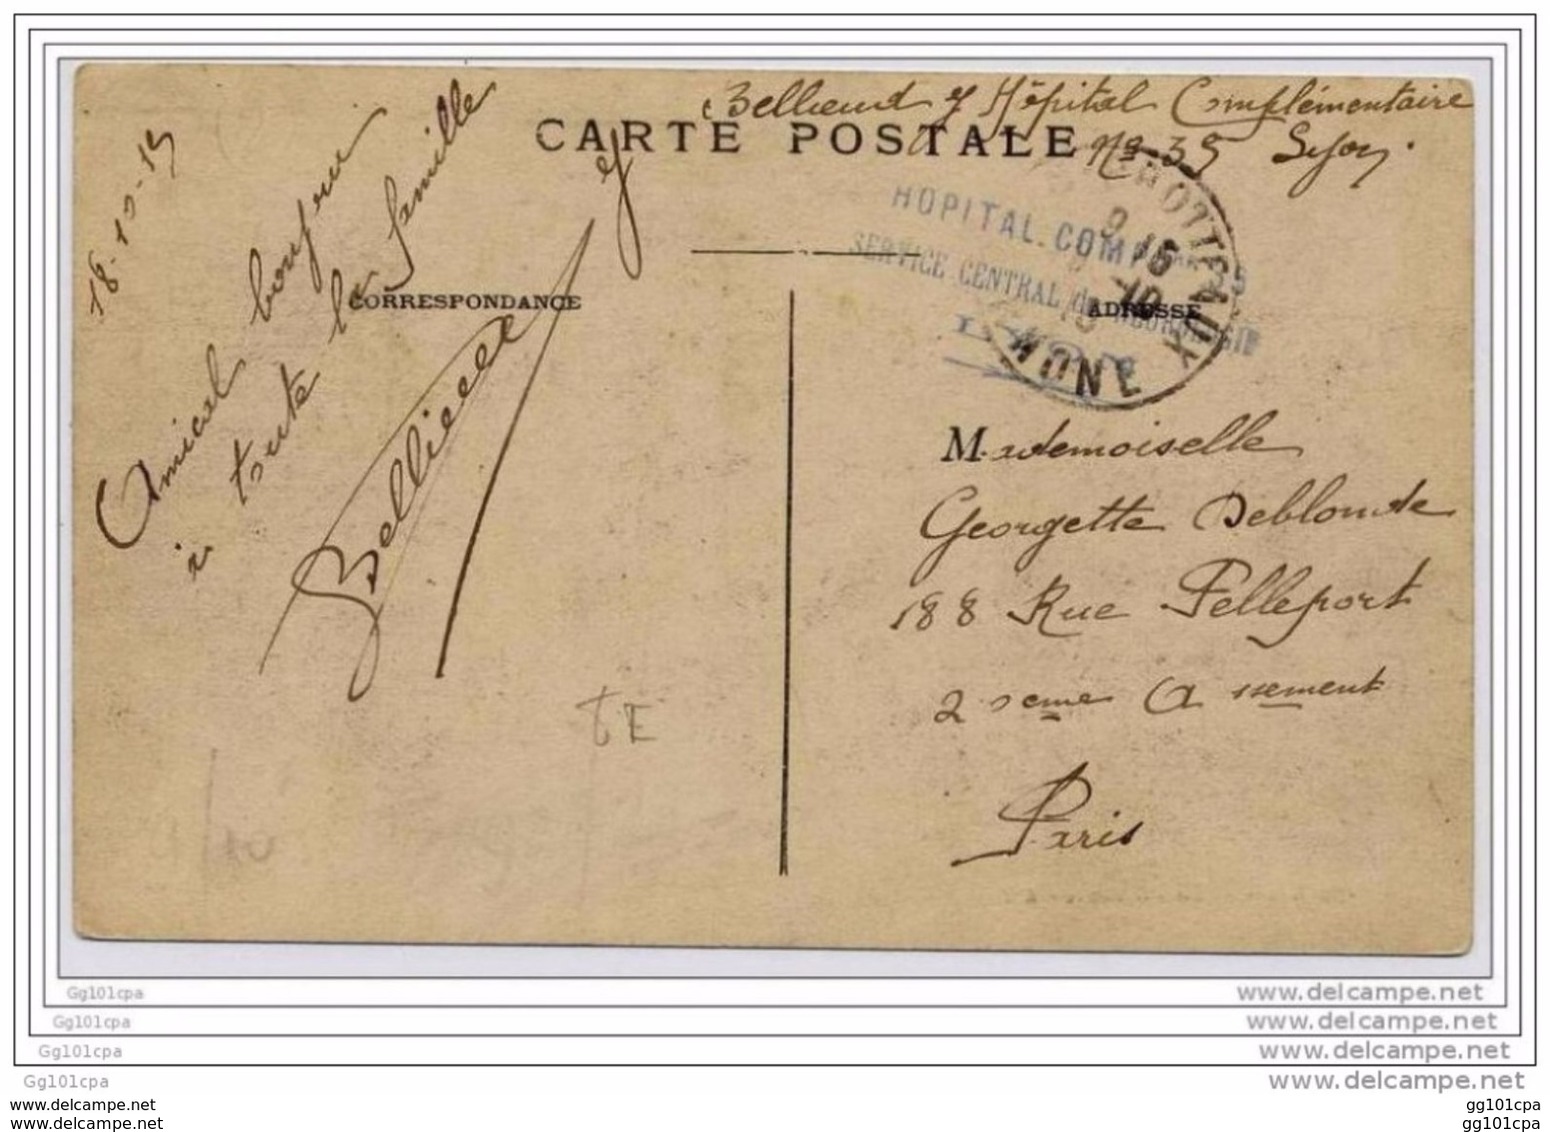 Bellieud Hôpital Complémentaire
No 35 Lyon.
CARTE POSTALE
HOPITAL. COMP
SERVICE CENTRAL de NEUROLOGIE
LYON
BROTTEAUX
RHONE
CORRESPONDANCE
ADRESSE
18-10-15
Amical bonjour
à toute la famille
Mademoiselle
Georgette Deblonde
188 Rue Pelleport
20eme A ssement
Paris
TE
Gg101cpa
www.delcampe.net
Gg101cpa
www.delcampe.net
Gg101cpa
www.delcampe.net
Gg101cpa
www.delcampe.net
www.delcampe.net
gg101cpa
www.delcampe.net
gg101cpa